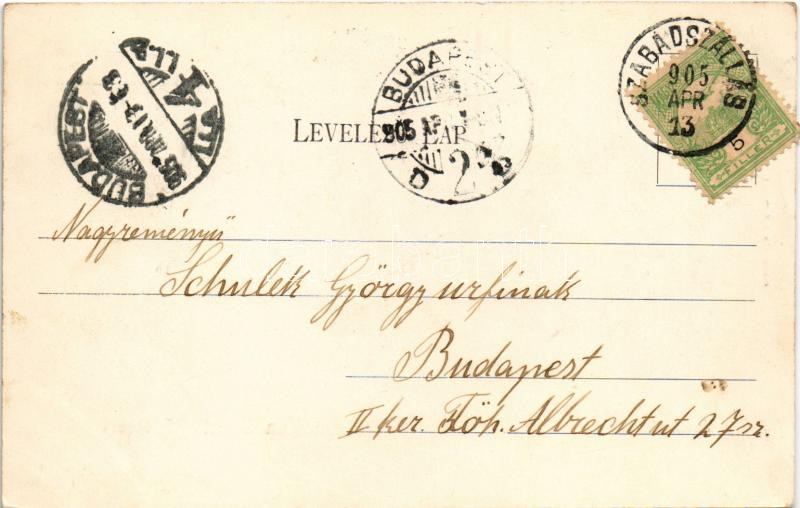 BUDAPEST
BUDAPEST
SZABADSZÁLLÁS
905
APR
13
5
FILLÉR
LEVELEZŐ LAP
Nagyreményű
Schulek György urfinak
Budapest
II ker. Föh. Albrecht ut 27 sz.